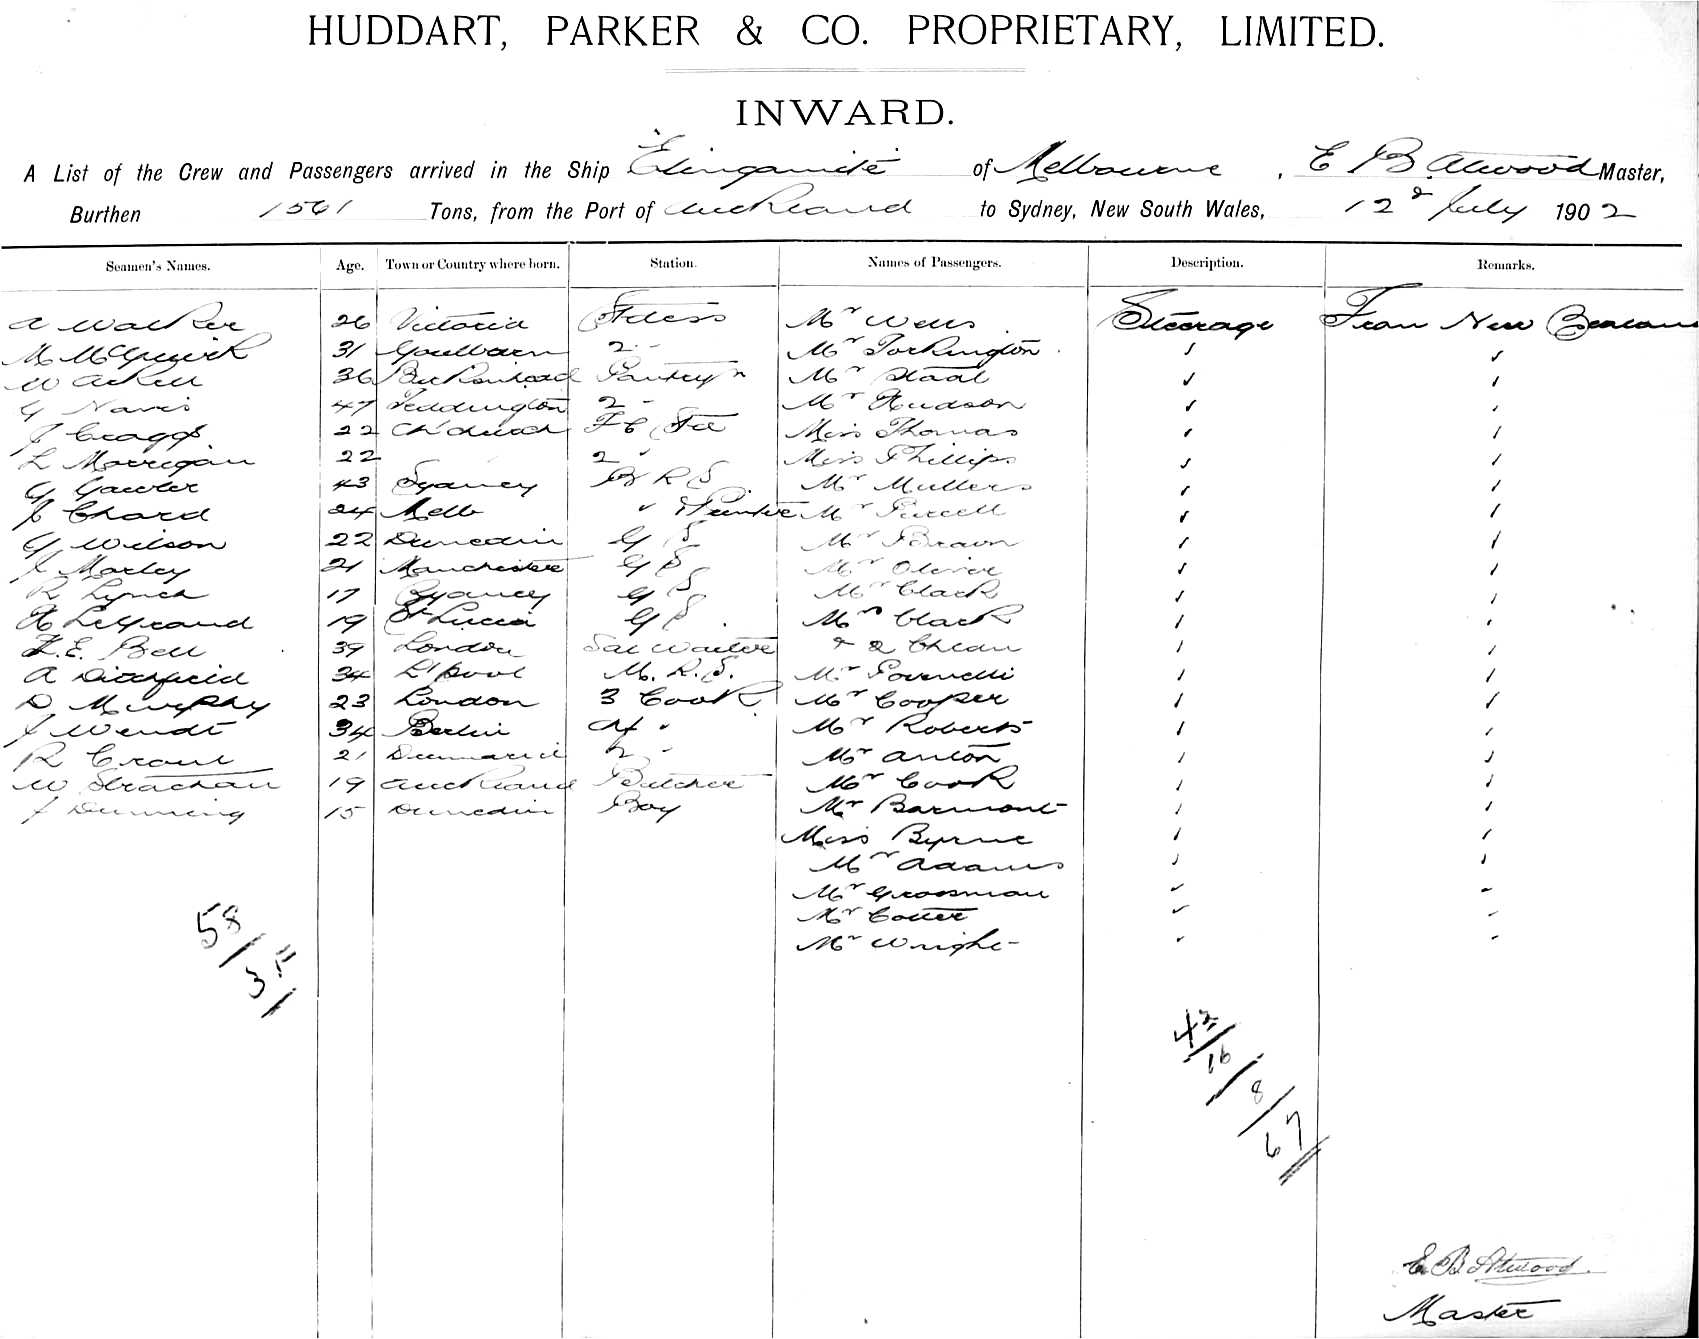 HUDDART, PARKER & CO. PROPRIETARY, LIMITED.
INWARD.
A List of the Crew and Passengers arrived in the Ship Elingamite of Melbourne, E B Atwood Master,
Burthen 1561 Tons, from the Port of Auckland to Sydney, New South Wales, 12d July 1902
Seamen's Names. Age. Town or Country where born. Station. Names of Passengers. Description. Remarks.
A Walker 26 Victoria Stdess Mr Wells Steerage From New
M McGuirk 31 Goulburn 2 - Mr Torkington
W 36 Birkenhead Pantryn Mr Staal
G 47 Teddington 2 - Mr Hudson
J Craggs 22 Ch'church F C Stee Miss Thomas
L Morrigan 22 2 " Miss Phillips
G Gawler 43 Sydney B R S Mr Mullers
J Chard 24 Melb " Mr Purcell
G Wilson 22 Dunedin G S Mr Brown
J Morley 21 Manchester G S Mr Oliver
R Lynch 17 Sydney G S Mr Clack
H LeGrand 19 St Lucia G S Mrs Clack
F. E. Bell 39 London Sal Waiter & 2 Children
A Ditchfield 34 L'pool M. R. S. Mr
D Murphy 23 London 3 Cook Mr Cooper
J Wendt 34 Berlin Mr Roberts
R 21 2 - Mr Anton
W Strachan 19 Auckland Butcher Mr Cook
J Dunning 15 Dunedin Boy Mr Barmont
Miss Byrne
Mr Adams
Mr Grossman
Mr Cotter
Mr Wright
58
35
42
16
8
67
E B Atwood
Master